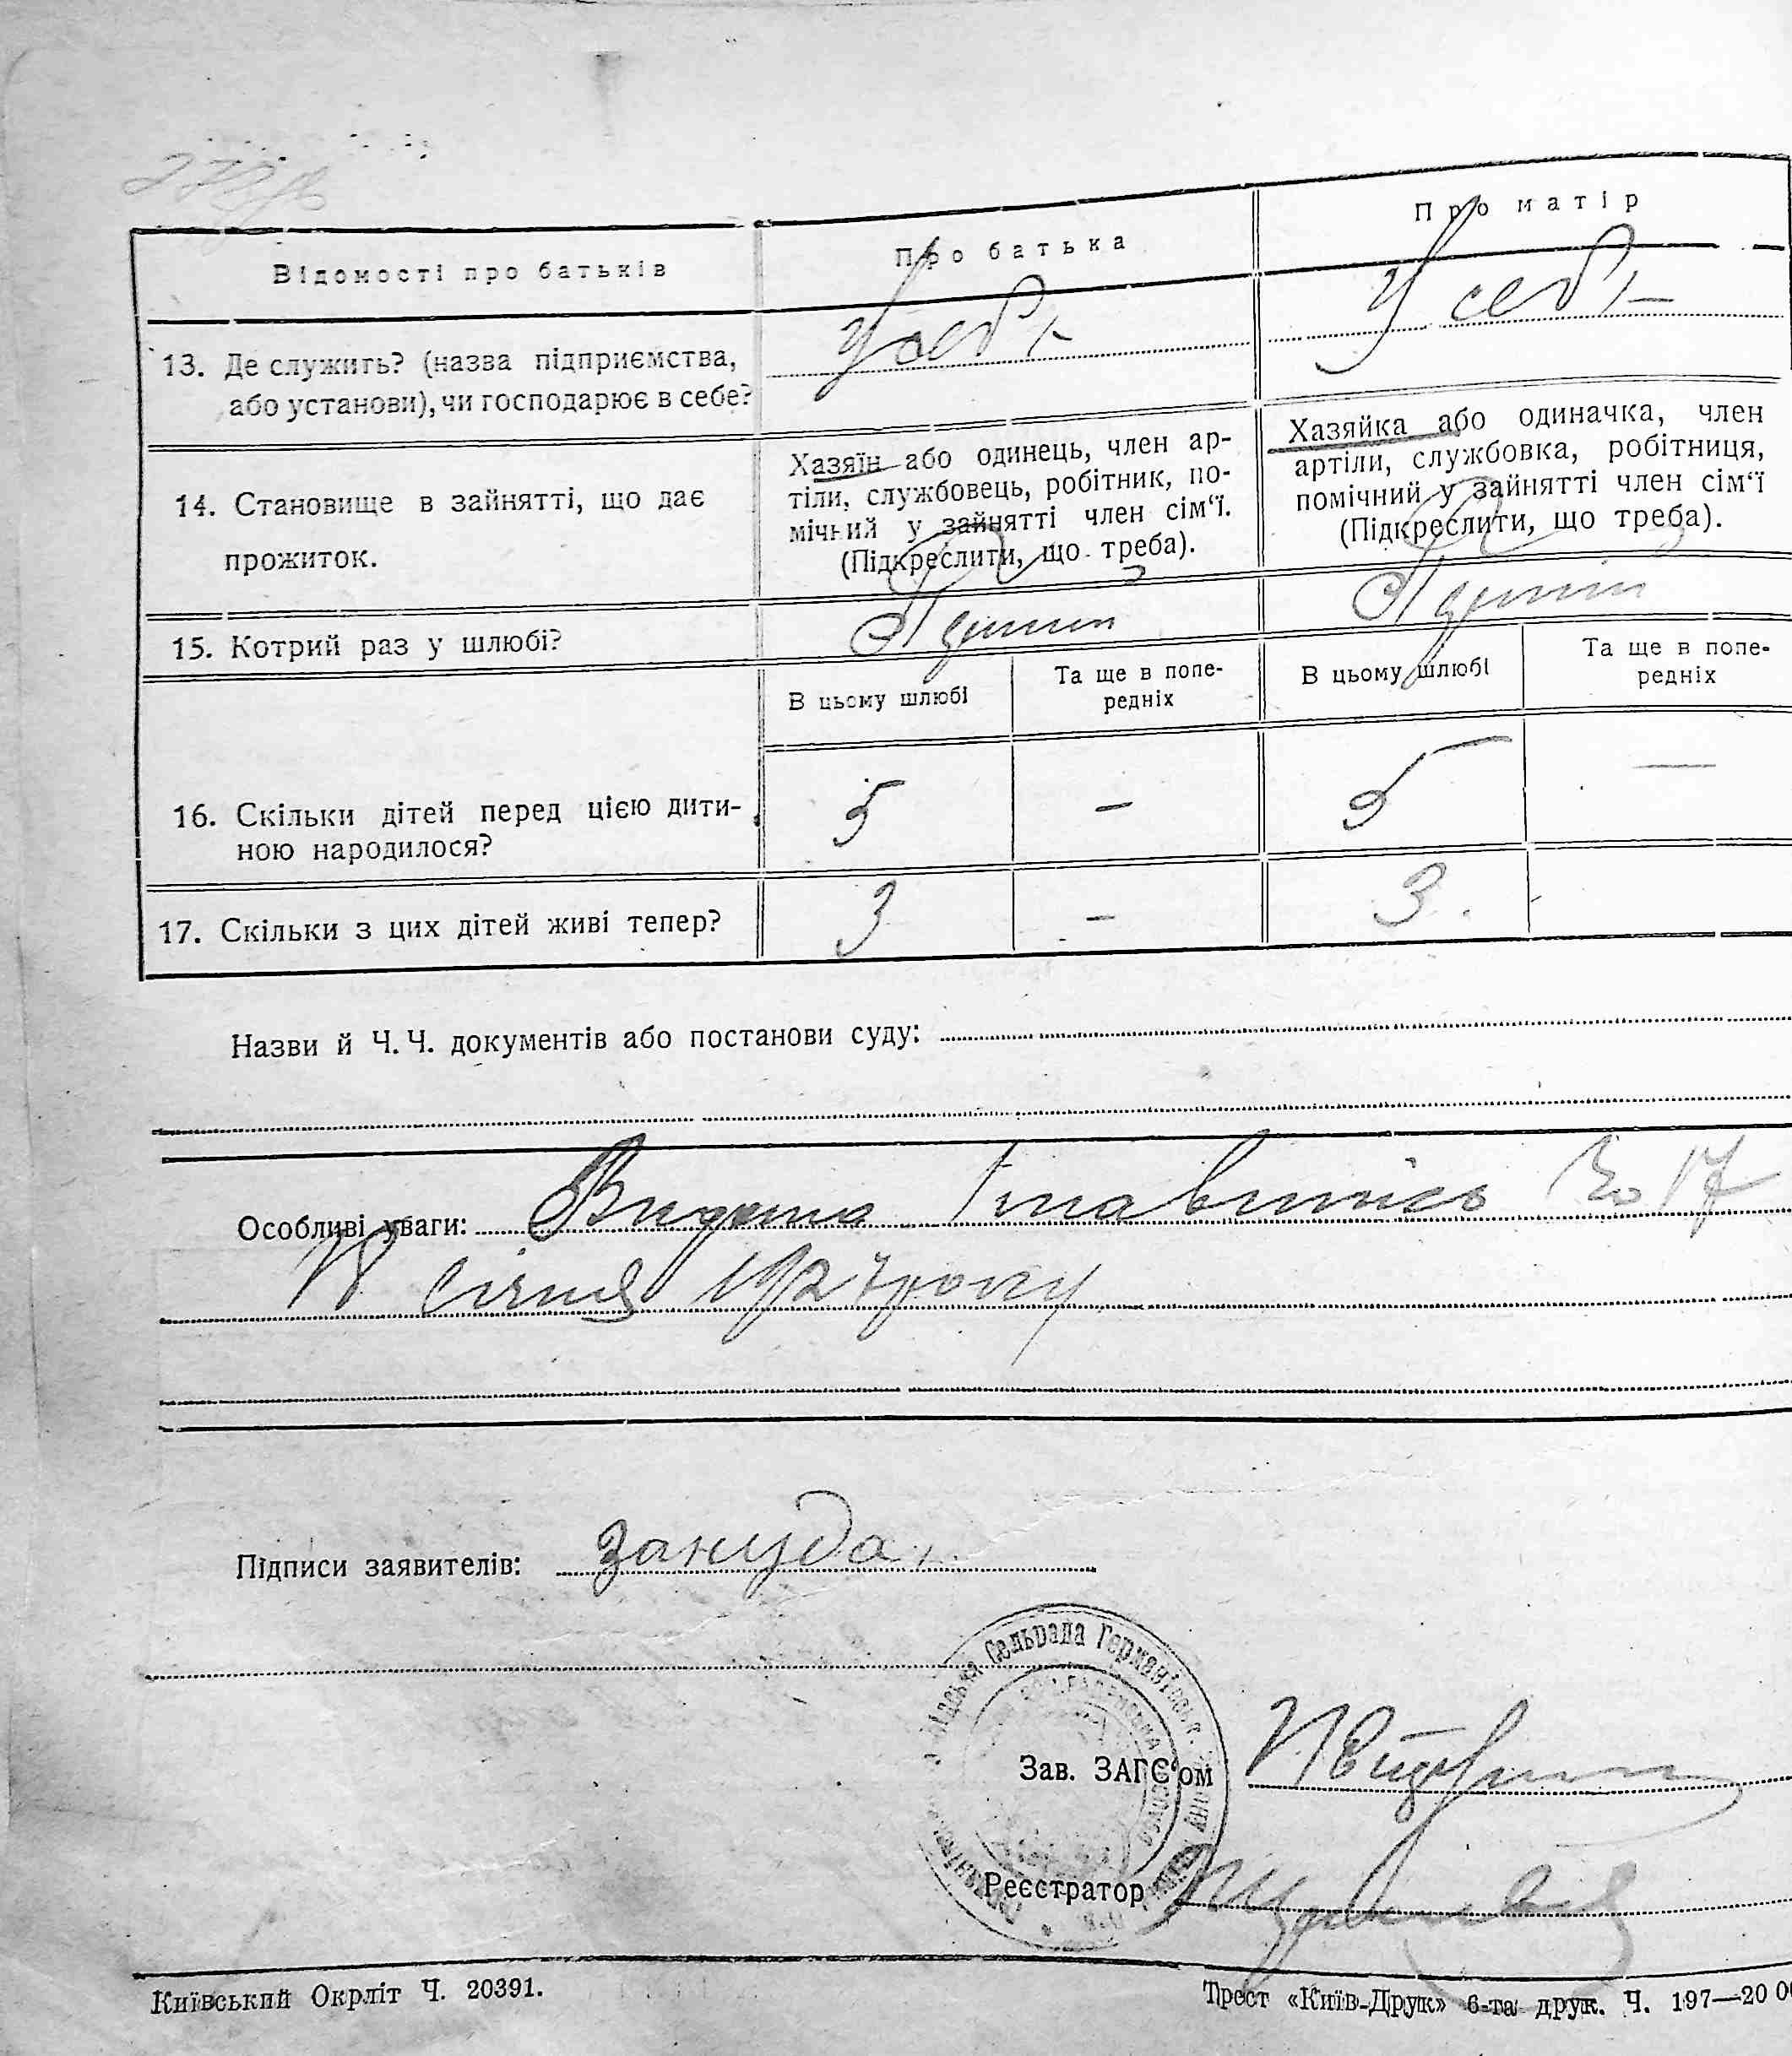 Відомості про батьків
Про батька
Про матір
13. Де служить? (назва підприємства, або установи), чи господарює в себе?
У себе
У себе
14. Становище в зайнятті, що дає прожиток.
Хазяїн або одинець, член артіли, службовець, робітник, помічний у зайнятті член сім‘ї. (Підкреслити, що треба).
Хазяйка або одиначка, член артіли, службовка, робітниця, помічний у зайнятті член сім‘ї (Підкреслити, що треба).
15. Котрий раз у шлюбі?
В цьому шлюбі
Та ще в попередніх
В цьому шлюбі
Та ще в попередніх
16. Скільки дітей перед цією дитиною народилося?
5
—
5
—
17. Скільки з цих дітей живі тепер?
3
—
3
Назви й Ч.Ч. документів або постанови суду:
Особливі уваги: Видана 17
січня 1927 року
Підписи заявителів: Закуда
Сельрада
Зав. ЗАГС‘ом
Реєстратор
Київський Окрліт Ч. 20391.
Трест «Київ-Друк» 6-та друк. Ч. 197—20 0